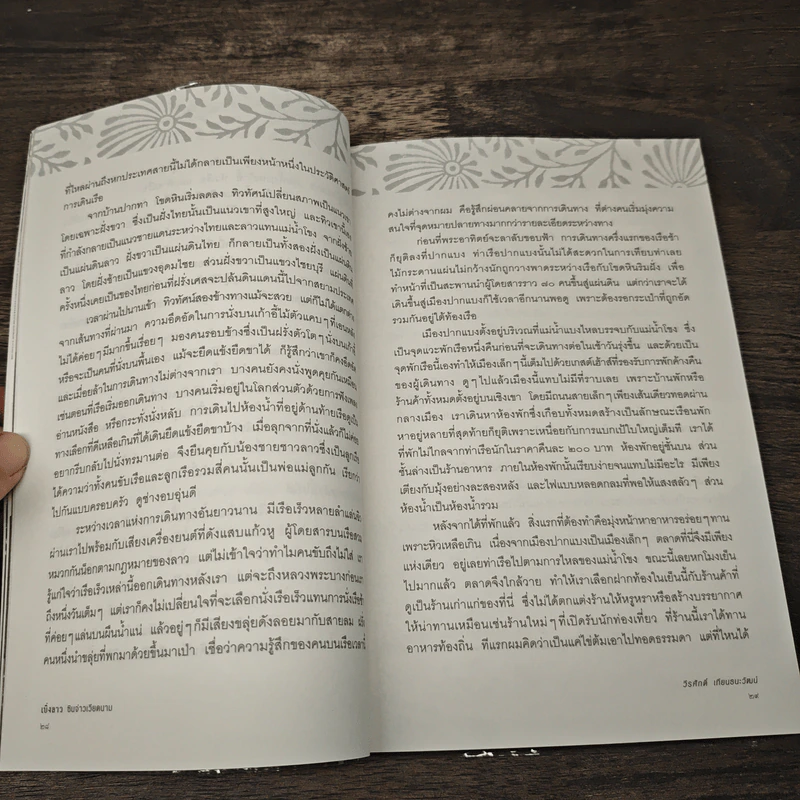 ที่ไหลผ่านถึงหกประเทศสายนี้ไม่ได้กลายเป็นเพียงหน้าหนึ่งในประวัติศาสตร์
การเดินเรือ
จากบ้านปากทา โขดหินเริ่มลดลง ทิวทัศน์เปลี่ยนสภาพเป็นแนวเขา
โดยเฉพาะฝั่งขวา ซึ่งเป็นฝั่งไทยนั้นเป็นแนวเขาที่สูงใหญ่ และทิวเขานี้เอง
ที่กำลังกลายเป็นแนวชายแดนระหว่างไทยและลาวแทนแม่น้ำโขง จากฝั่งซ้าย
เป็นแผ่นดินลาว ฝั่งขวาเป็นแผ่นดินไทย ก็กลายเป็นทั้งสองฝั่งเป็นแผ่นดิน
ลาว โดยฝั่งซ้ายเป็นแขวงอุดมไชย ส่วนฝั่งขวาเป็นแขวงไชยบุรี แผ่นดินที่
ครั้งหนึ่งเคยเป็นของไทยก่อนที่ฝรั่งเศสจะปล้นดินแดนนี้ไปจากสยามประเทศ
เวลาผ่านไปนานเข้า ทิวทัศน์สองข้างทางแม้จะสวย แต่ก็ไม่ได้แตกต่าง
จากเส้นทางที่ผ่านมา ความอึดอัดในการนั่งบนเก้าอี้ไม้ตัวแคบๆที่เอนหลัง
ไม่ได้ค่อยๆมีมากขึ้นเรื่อยๆ มองคนรอบข้างซึ่งเป็นฝรั่งตัวโตๆนั่งบนเก้าอี้
หรือจะเป็นคนที่นั่งบนพื้นเอง แม้จะยืดแข้งยืดขาได้ ก็รู้สึกว่าเขาก็คงอึดอัด
และเมื่อยล้าในการเดินทางไม่ต่างจากเรา บางคนยังคงนั่งพูดคุยกันเหมือน
เช่นตอนที่เรือเริ่มออกเดินทาง บางคนเริ่มอยู่ในโลกส่วนตัวด้วยการฟังเพลง
อ่านหนังสือ หรือกระทั่งนั่งหลับ การเดินไปห้องน้ำที่อยู่ด้านท้ายเรือดูเป็น
ทางเลือกที่ดีเหลือเกินที่ได้เดินยืดแข้งยืดขาบ้าง เมื่อลุกจากที่นั่งแล้วก็ไม่ค่อย
อยากรีบกลับไปนั่งทรมานต่อ จึงยืนคุยกับน้องชายชาวลาวซึ่งเป็นลูกเรือ
ได้ความว่าทั้งคนขับเรือและลูกเรือรวมสี่คนนั้นเป็นพ่อแม่ลูกกัน เรียกว่า
ไปกันแบบครอบครัว ดูช่างอบอุ่นดี
ระหว่างเวลาแห่งการเดินทางอันยาวนาน มีเรือเร็วหลายลำแล่นฉิว
ผ่านเราไปพร้อมกับเสียงเครื่องยนต์ที่ดังแสบแก้วหู ผู้โดยสารบนเรือสวม
หมวกกันน็อกตามกฎหมายของลาว แต่ไม่เข้าใจว่าทำไมคนขับถึงไม่ใส่ เรา
รู้แก่ใจว่าเรือเร็วเหล่านี้ออกเดินทางหลังเรา แต่จะถึงหลวงพระบางก่อนเรา
ถึงหนึ่งวันเต็มๆ แต่เราก็คงไม่เปลี่ยนใจที่จะเลือกนั่งเรือเร็วแทนการนั่งเรือช้า
ที่ค่อยๆแล่นบนผืนน้ำแน่ แล้วอยู่ๆก็มีเสียงขลุ่ยดังลอยมากับสายลม ฝรั่ง
คนหนึ่งนำขลุ่ยที่พกมาด้วยขึ้นมาเป่า เชื่อว่าความรู้สึกของคนบนเรือเวลานี้
เยี่ยงลาว ซินจ่าวเวียดนาม
๒๘
คงไม่ต่างจากผม คือรู้สึกผ่อนคลายจากการเดินทาง ที่ต่างคนเริ่มมุ่งความ
สนใจที่จุดหมายปลายทางมากกว่ารายละเอียดระหว่างทาง
ก่อนที่พระอาทิตย์จะลาลับขอบฟ้า การเดินทางครึ่งแรกของเรือช้า
ก็ยุติลงที่ปากแบง ท่าเรือปากแบงนั้นไม่ได้สะดวกในการเทียบท่าเลย
ไม้กระดานแผ่นไม่กว้างนักถูกวางพาดระหว่างเรือกับโขดหินริมฝั่ง เพื่อ
ทำหน้าที่เป็นสะพานนำผู้โดยสารราว ๗๐ คนขึ้นสู่แผ่นดิน แต่กว่าเราจะได้
เดินขึ้นสู่เมืองปากแบงก็ใช้เวลาอีกนานพอดู เพราะต้องรอกระเป๋าที่ถูกอัด
รวมกันอยู่ใต้ท้องเรือ
เมืองปากแบงตั้งอยู่บริเวณที่แม่น้ำแบงไหลบรรจบกับแม่น้ำโขง ซึ่ง
เป็นจุดแวะพักเรือหนึ่งคืนก่อนที่จะเดินทางต่อในเช้าวันรุ่งขึ้น และด้วยเป็น
จุดพักเรือนี้เองทำให้เมืองเล็กๆนี้เต็มไปด้วยเกสต์เฮ้าส์ที่รองรับการพักค้างคืน
ของผู้เดินทาง ดูๆไปแล้วเมืองนี้แทบไม่มีที่ราบเลย เพราะบ้านพักหรือ
ร้านค้าทั้งหมดตั้งอยู่บนเชิงเขา โดยมีถนนสายเล็กๆเพียงเส้นเดียวทอดผ่าน
กลางเมือง เราเดินหาห้องพักซึ่งเกือบทั้งหมดสร้างเป็นลักษณะเรือนพัก
หาอยู่หลายที่สุดท้ายก็ยุติเพราะเหนื่อยกับการแบกเป้ใบใหญ่เต็มที เราได้
ที่พักไม่ไกลจากท่าเรือนักในราคาคืนละ ๒๐๐ บาท ห้องพักอยู่ชั้นบน ส่วน
ชั้นล่างเป็นร้านอาหาร ภายในห้องพักนั้นเรียบง่ายจนแทบไม่มีอะไร มีเพียง
เตียงกับมุ้งอย่างละสองหลัง และไฟแบบหลอดกลมที่พอให้แสงสลัวๆ ส่วน
ห้องน้ำเป็นห้องน้ำรวม
หลังจากได้ที่พักแล้ว สิ่งแรกที่ต้องทำคือมุ่งหน้าหาอาหารอร่อยๆทาน
เพราะหิวเหลือเกิน เนื่องจากเมืองปากแบงเป็นเมืองเล็กๆ ตลาดที่นี่จึงมีเพียง
แห่งเดียว อยู่เลยท่าเรือไปตามการไหลของแม่น้ำโขง ขณะนี้เลยหกโมงเย็น
ไปมากแล้ว ตลาดจึงใกล้วาย ทำให้เราเลือกฝากท้องในเย็นนี้กับร้านค้าที่
ดูเป็นร้านเก่าแก่ของที่นี่ ซึ่งไม่ได้ตกแต่งร้านให้หรูหราหรือสร้างบรรยากาศ
ให้น่าทานเหมือนเช่นร้านใหม่ๆที่เปิดรับนักท่องเที่ยว ที่ร้านนี้เราได้ทาน
อาหารท้องถิ่น ทีแรกผมคิดว่าเป็นแค่ไข่ต้มเอาไปทอดธรรมดา แต่ที่ไหนได้
วีรศักดิ์ เทียนธนะวัฒน์
๒๙